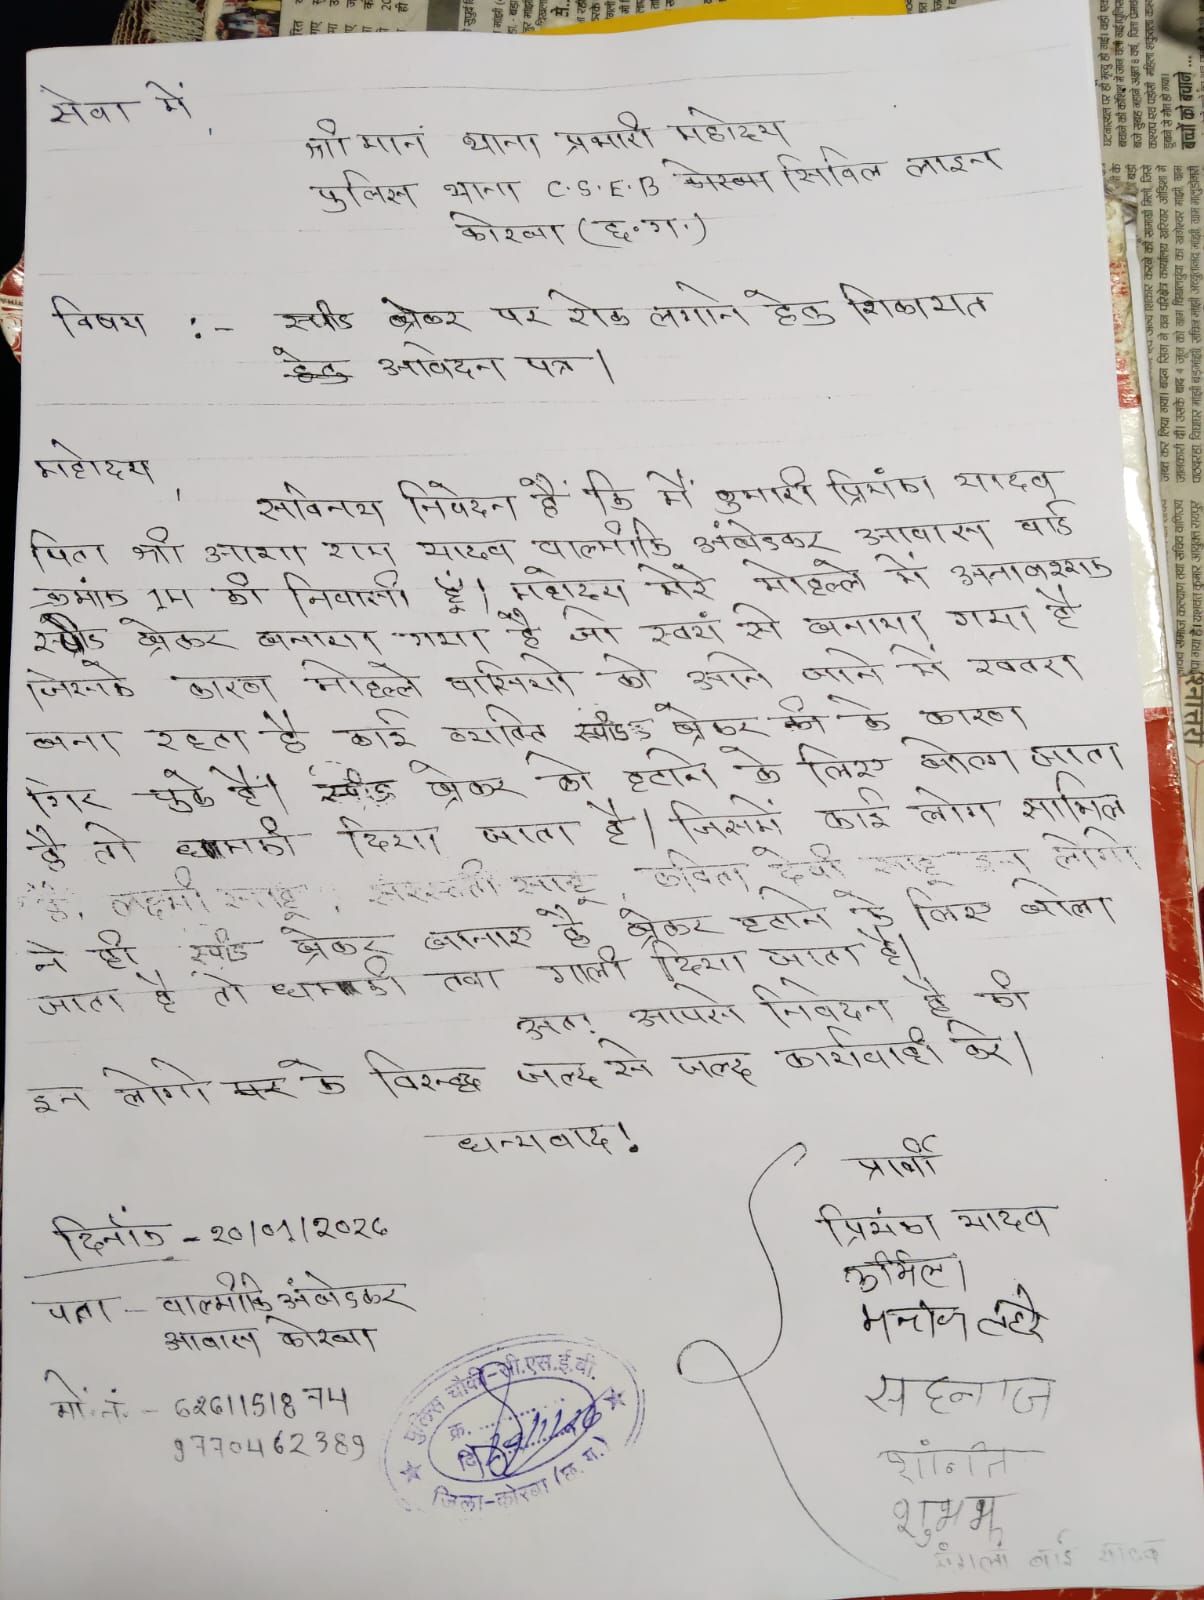 सेवा में,
श्री मान थाना प्रभारी महोदय
पुलिस थाना C.S.E.B कोरबा सिविल लाइन
कोरबा (छ.ग.)
विषय :- स्पीड ब्रेकर पर रोक लगाने हेतु शिकायत
हेतु आवेदन पत्र।
महोदय,
सविनय निवेदन हैं कि मैं कुमारी प्रियंका यादव
पिता श्री आशा राम यादव वाल्मीकि अंबेडकर आवास वार्ड
क्रमांक 1म की निवासी हूं। महोदय मेरे मोहल्ले में अनावश्यक
स्पीड ब्रेकर बनाया गया है जो स्वयं से बनाया गया है
जिसके कारण मोहल्ले वासियो को आने जाने में खतरा
बना रहता है कई व्यक्ति स्पीड ब्रेकर की के कारण
गिर चुके हैं। स्पीड ब्रेकर को हटाने के लिए बोला जाता
है तो धमकी दिया जाता है। जिसमें कई लोग सामिल
हैं, लक्ष्मी साहू, सरस्वती साहू, कविता देवी साहू इन लोगो
ने ही स्पीड ब्रेकर बानाए है ब्रेकर हटाने के लिए बोला
जाता है तो धमकी तथा गाली दिया जाता है।
अतः आपसे निवेदन है की
इन लोगो पर के विरुद्ध जल्द से जल्द कार्यवाही करे।
धन्यवाद!
प्रार्थी
दिनाँक - २०/०1/२०२६
प्रियंका यादव
उर्मिला
पता - वाल्मीकि अंबेडकर
मनोज लहरे
आवास कोरबा
सहनाज
मों.नं. - 6261151874
9770462389
शांति
शुभम
मंगला बाई यादव
पुलिस चौकी-सी.एस.ई.बी.
क्र. ..........
दि.
जिला-कोरबा (छ.ग.)